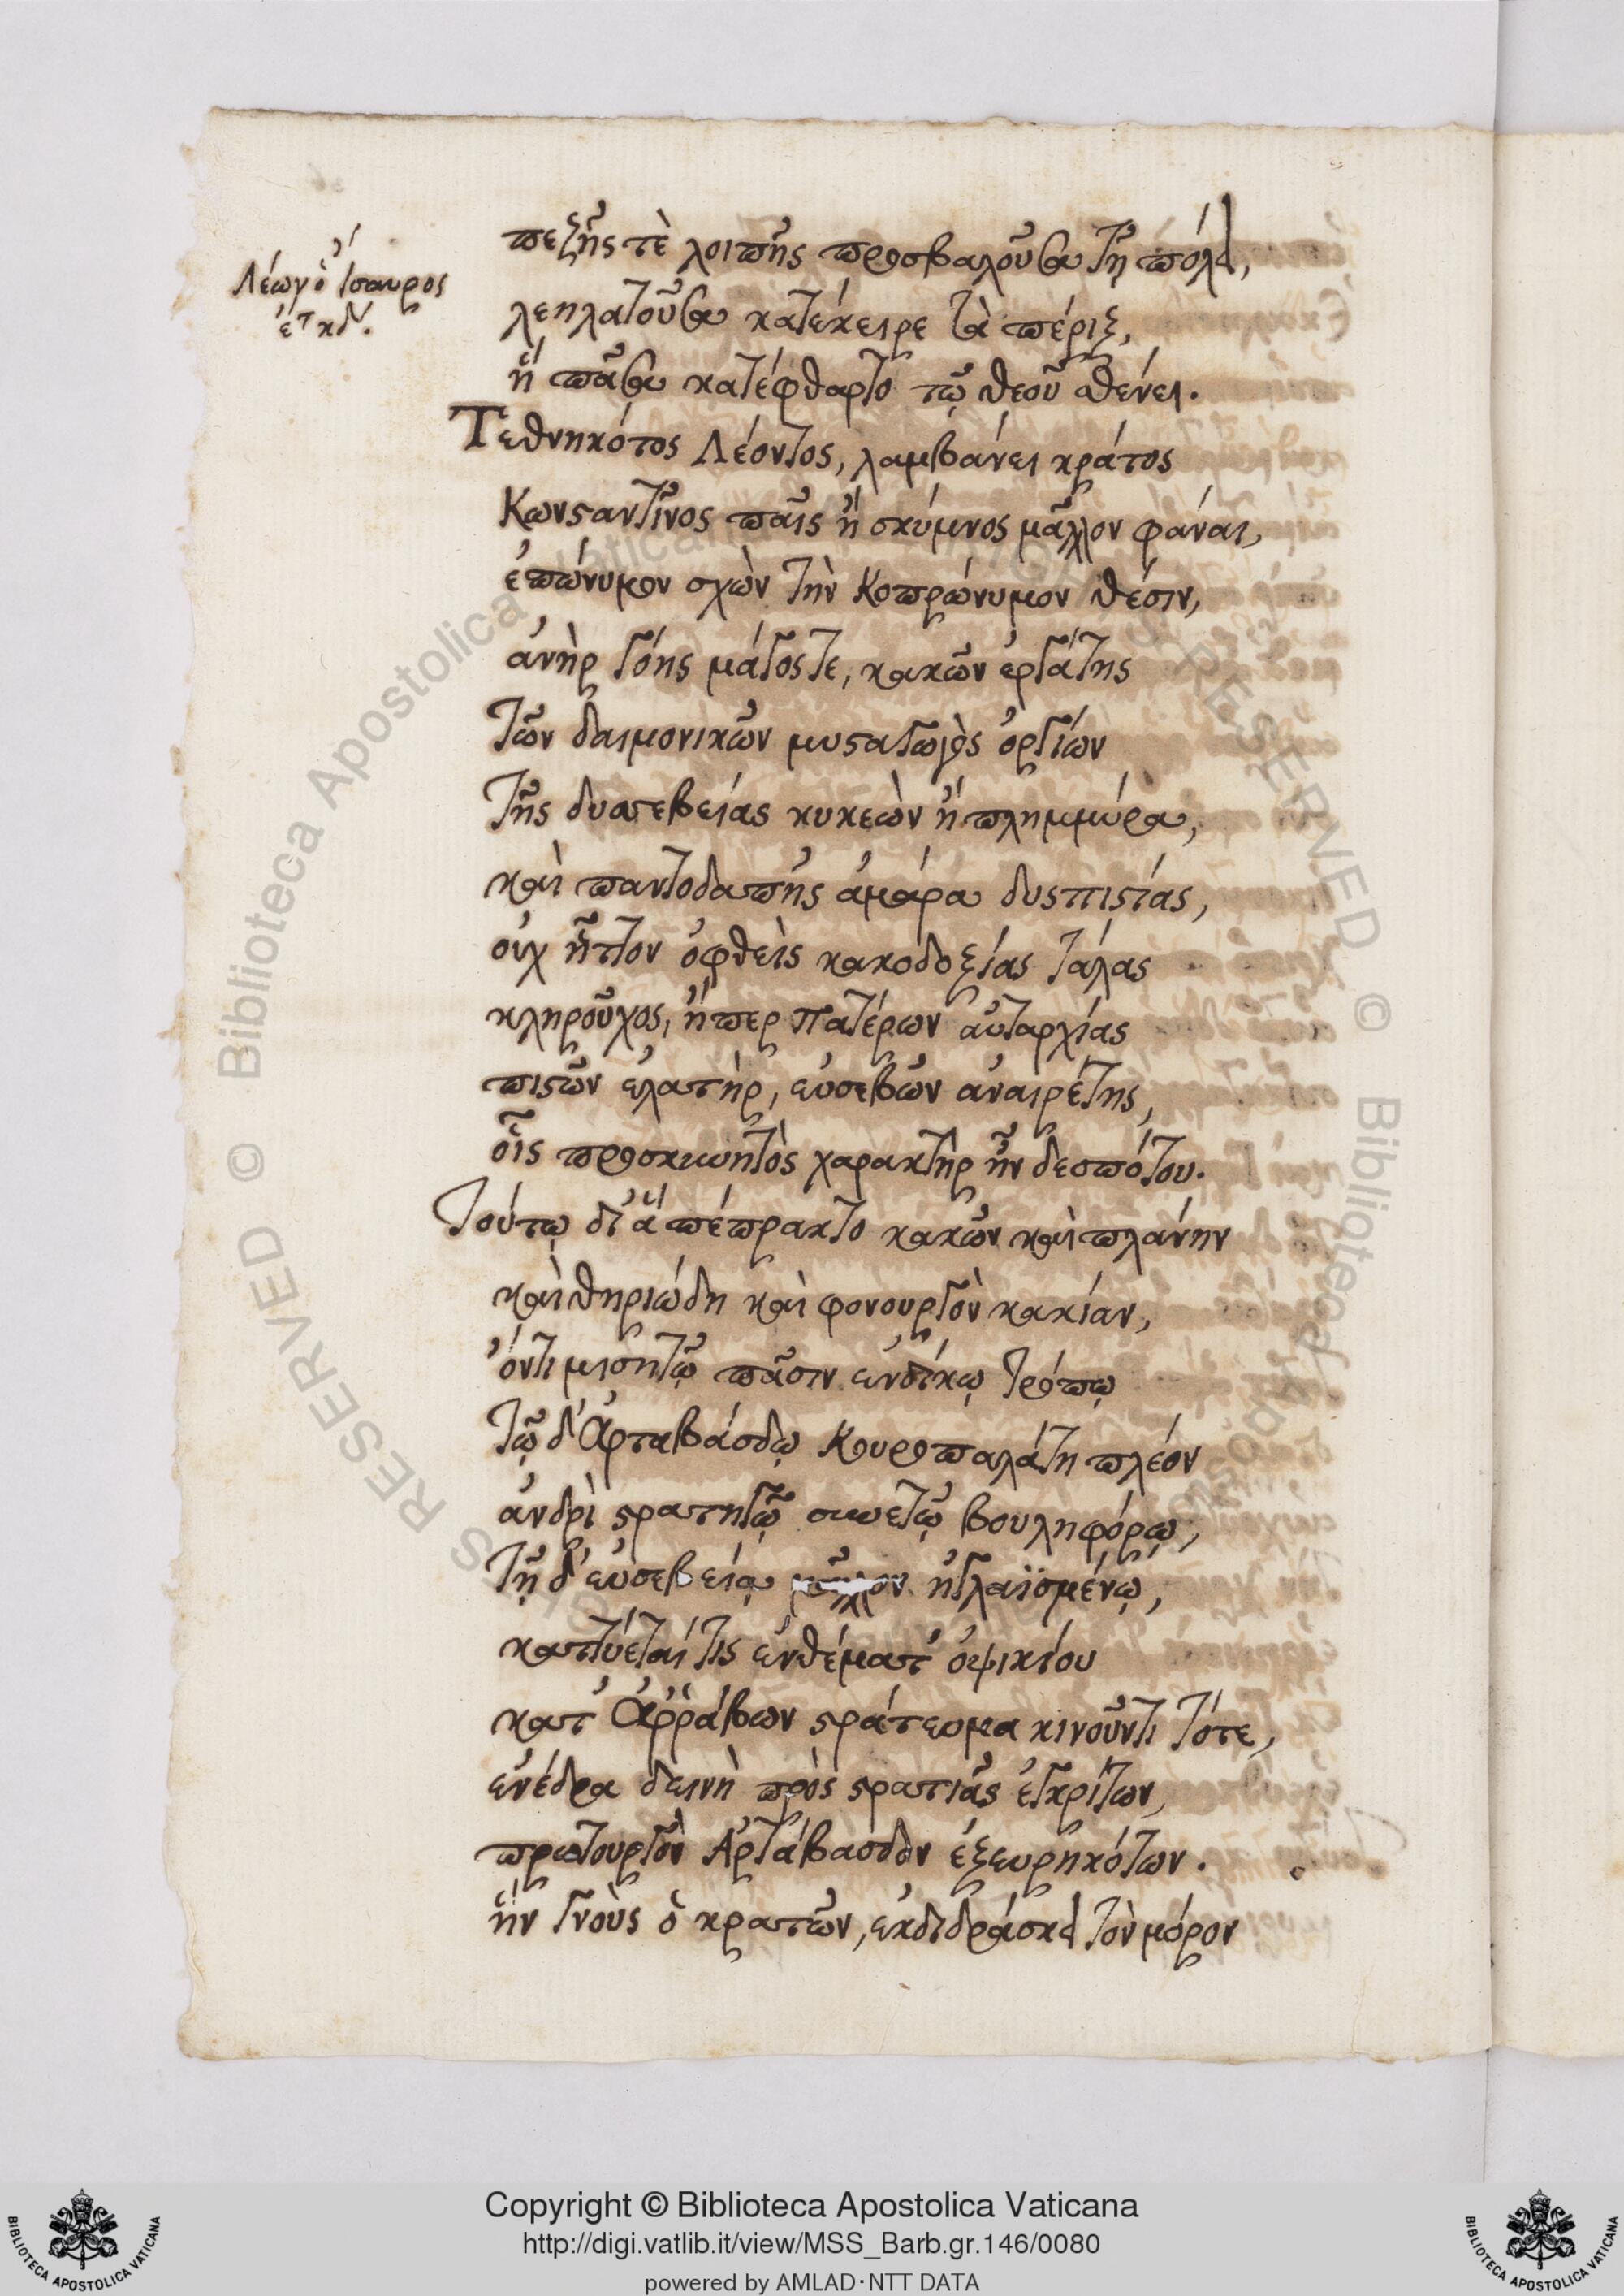 Λέων ὁ ἴσαυρος
ἔτ κδ´.
πεζῆς τὲ λοιπῆς προσβαλοῦσα τῇ πόλει,
λεηλατοῦσα κατέκειρε τὰ πέριξ,
ἣ πᾶσα κατέφθαρτο τῷ θεοῦ σθένει.
Τεθνηκότος Λέοντος, λαμβάνει κράτος
Κωνσταντῖνος παῖς ἢ σκύμνος μᾶλλον φάναι,
ἐπώνυμον σχὼν τὴν Κοπρώνυμον θέσιν,
ἀνὴρ γόης μάγος τε, κακῶν ἐργάτης
τῶν δαιμονικῶν μυσταγωγὸς ὀργίων
τῆς δυσσεβείας κυκεὼν ἢ πλημμύρα,
καὶ παντοδαπῆς ἀμάρα δυσπιστίας,
οὐχ ἧττον ὀφθεὶς κακοδοξίας τάλας
κληροῦχος, ἤπερ πατέρων αὐταρχίας
πιστῶν ἐλατὴρ, εὐσεβῶν ἀναιρέτης,
οἷς προσκυνητὸς χαρακτὴρ ἦν δεσπότου.
Τούτῳ δι᾽ ἃ πέπρακτο κακῶν καὶ πλάνην
καὶ θηριώδη καὶ φονουργὸν κακίαν,
ὄντι μισητῷ πᾶσιν ἐνδίκῳ τρόπῳ
τῷ δ᾽ Ἀρταβάσδῳ Κουροπαλάτῃ πλέον
ἀνδρὶ στρατηγῷ συνετῷ βουληφόρῳ,
τῇ δ᾽ εὐσεβείᾳ μᾶλλον ἠγλαϊσμένῳ,
καττύεταί τις ἐνθέματ᾽ ὀψικίου
κατ᾽ Ἀῤῥάβων στράτευμα κινοῦντι τότε,
ἐνέδρα δεινὴ πρὸς στρατιᾶς ἐγκρίτων,
πρωτουργὸν Ἀρτάβασδον ἐξευρηκότων.
ἣν γνοὺς ὁ κρατῶν, ἐκδιδράσκει τὸν μόρον
Copyright © Biblioteca Apostolica Vaticana
http://digi.vatlib.it/view/MSS_Barb.gr.146/0080
powered by AMLAD·NTT DATA